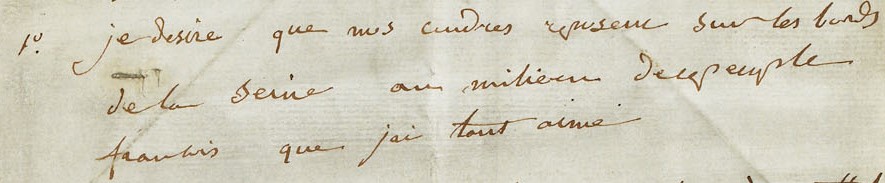 1º. je desire que mes cendres reposent sur les bords
de la Seine au milieu de ce peuple
francais que j'ai tant aimé